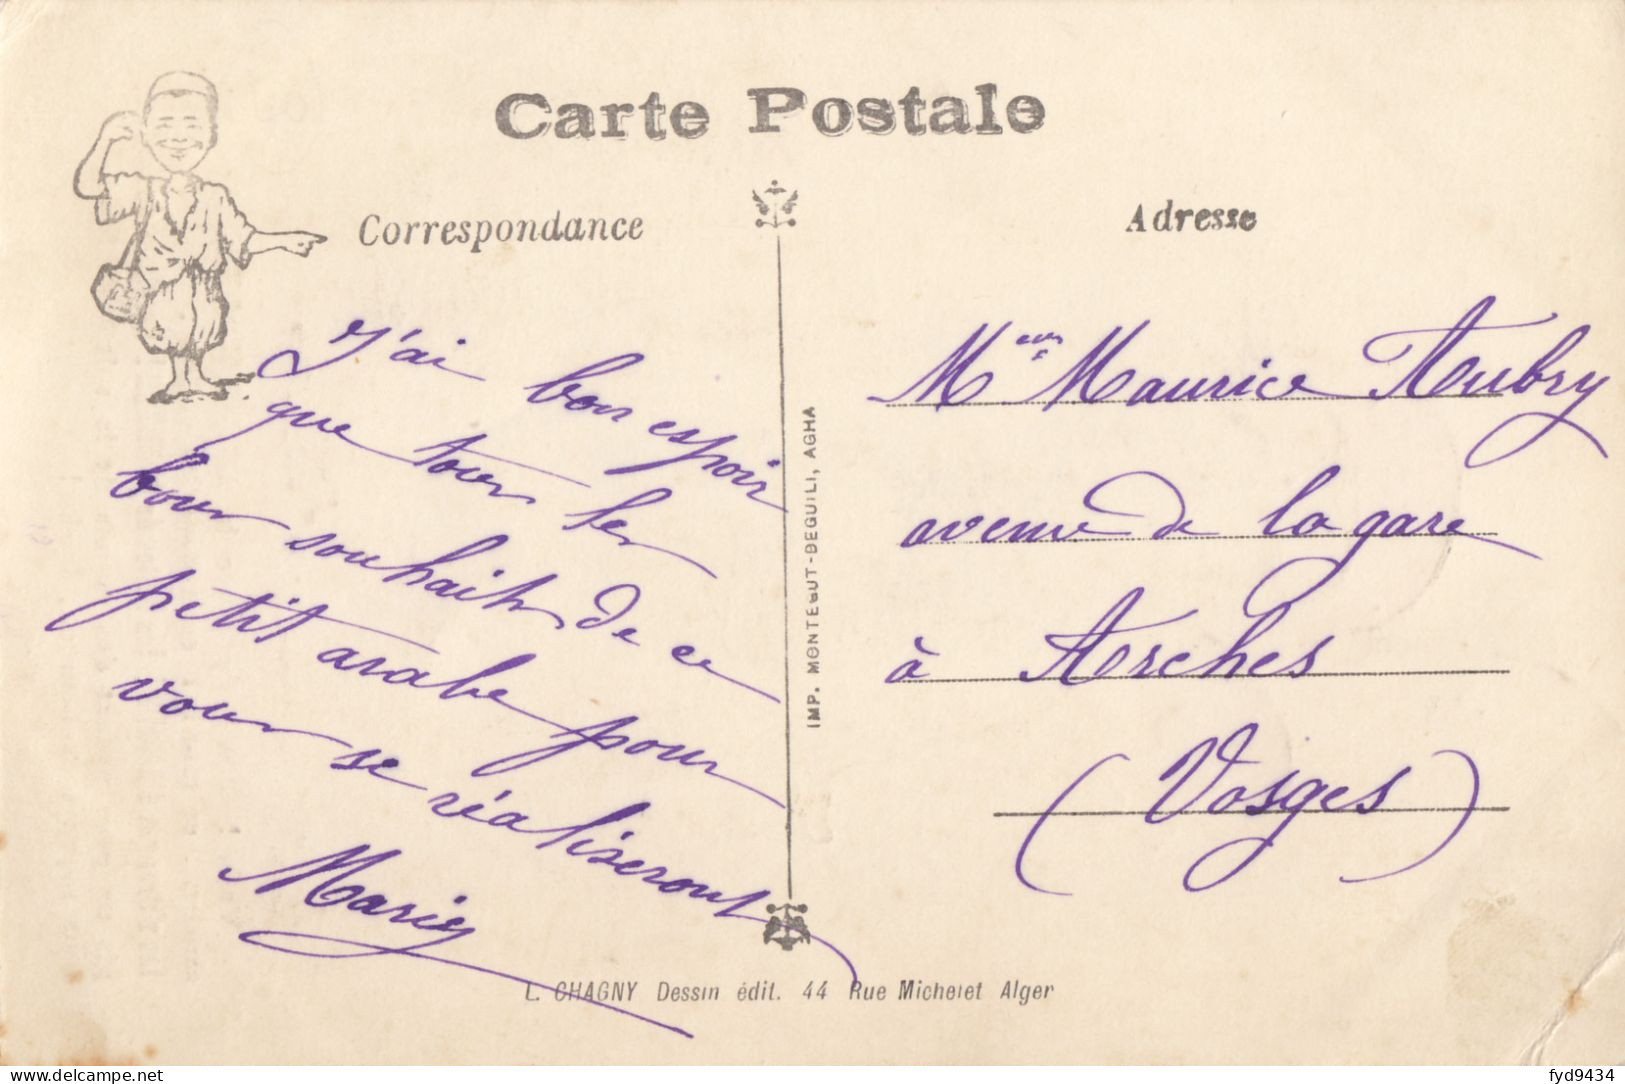 Carte Postale
Correspondance
J'ai bon espoir
que tous les
bons souhaits de ce
petit arabe pour
vous se réaliseront
Marie
Adresse
Maurice Aubry
avenue de la gare
à Arches
(Vosges)
IMP. MONTEGUT-DEGUILI, AGHA
L. CHAGNY Dessin édit. 44 Rue Michelet Alger
delcampe.net
fyd9434